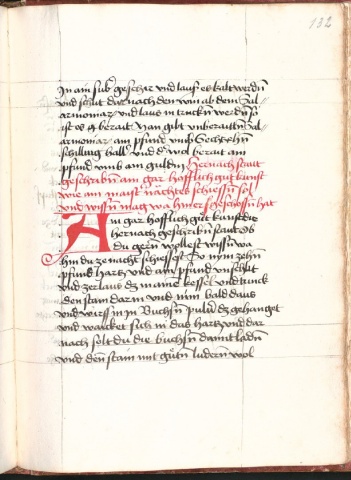 132
In ain sub˜ geschir vnd lauß es kalt werdn̄
vnd schüt dar nach den win ab dem Sal
armoniax vnd lauß in truckn̄ werdn̄ so
ist es berait Man gibt vnberaittn̄ Sal
armoniax ain pfund vmb Sechtzehn̄
schilling hall˜ vnd d˜ wol berait ain
pfund vmb ain guldin Hernach staut
geschribn̄ ain gar hofflich gůt kunst
wie ain maist˜ nachtes schiessn̄ sol
vnd wissn̄ mag wa hin er geschossn̄ hat
Ain gar hofflich gůt kunst die
hernach geschribn̄ staut Ob
du gern wollest wissn̄ wa
hin du ze nacht schiessest So nym zehn̄
pfund hartz vnd ain pfund vnschlit
vnd zerlaus dz in aine kessel vnd truck
den stain dar in vnd nim bald daus
vnd wirff in in Buchsn̄ pulu˜ dz gehanget
vnd wacket sich in das hartz vnd dar
nach solt du die buchsn̄ damit ladn̄
vnd den stain mit gůtn̄ ludern wol